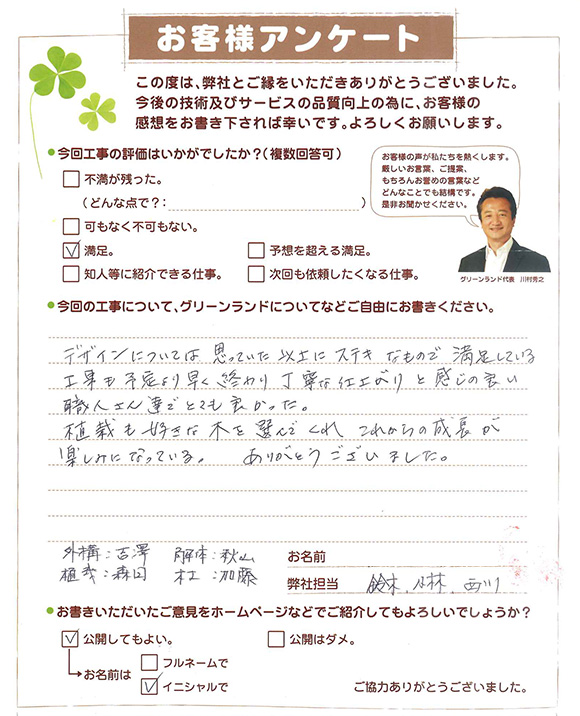 お客様アンケート
この度は、弊社とご縁をいただきありがとうございました。
今後の技術及びサービスの品質向上の為に、お客様の
感想をお書き下されば幸いです。よろしくお願いします。
今回工事の評価はいかがでしたか?(複数回答可)
不満が残った。
(どんな点で?: )
可もなく不可もない。
満足。
予想を超える満足。
知人等に紹介できる仕事。
次回も依頼したくなる仕事。
お客様の声が私たちを熱くします。
厳しいお言葉、ご提案、
もちろんお誉めの言葉など
どんなことでも結構です。
是非お聞かせください。
グリーンランド代表 川村芳之
今回の工事について、グリーンランドについてなどご自由にお書きください。
デザインについては 思っていた 以上に ステキ なもので 満足している
工事も 予定より 早く 終わり 丁寧な仕上がり と 感じの良い
職人さん達で とても 良かった。
植栽も 好きな 木を 選んでくれ これからの 成長が
楽しみになっている。 ありがとうございました。
外構:吉澤 解体:秋山
植栽:森田 大工:加藤
お名前
弊社担当 鈴木、小林、西川
お書きいただいたご意見をホームページなどでご紹介してもよろしいでしょうか?
公開してもよい。
公開はダメ。
お名前は
フルネームで
イニシャルで
ご協力ありがとうございました。